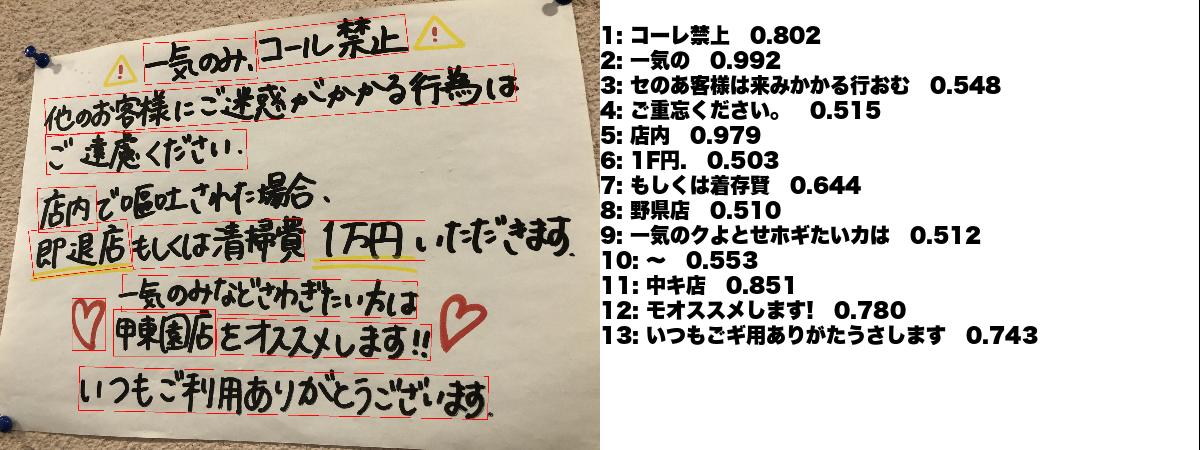 一気のみ、コール禁止
他のお客様にご迷惑がかかる行為は
ご遠慮ください.
店内で嘔吐された場合、
即退店もしくは清掃費 1万円 いただきます.
一気のみなどさわぎたい方は
甲東園店をオススメします!!
いつもご利用ありがとうございます.
1: コーレ禁上 0.802
2: 一気の 0.992
3: セのあ客様は来みかかる行おむ 0.548
4: ご重忘ください。 0.515
5: 店内 0.979
6: 1F円. 0.503
7: もしくは着存賢 0.644
8: 野県店 0.510
9: 一気のクよとせホギたいカは 0.512
10: ～ 0.553
11: 中キ店 0.851
12: モオススメします! 0.780
13: いつもごギ用ありがたうさします 0.743